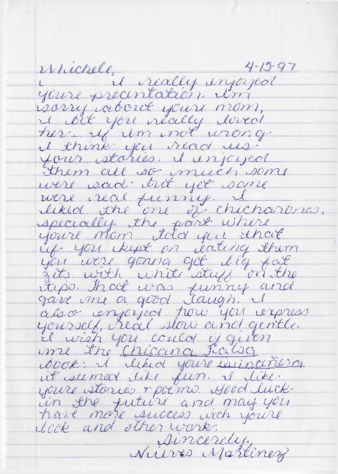 Michele, 4-15-97
I really enjoyed
youre presentation. Im
sorry about youre mom,
I bet you really loved
her. If im not wrong
I think you read us
your stories. I enjoyed
them all so much some
were sad but yet some
were real funny. I
liked the one of chicharones,
specially the part where
youre mom told you that
if you kept on eating them
you were gonna get big fat
zits with white stuff on the
tips. That was funny and
gave me a good laugh. I
also enjoyed how you express
yourself, real slow and gentle.
I wish you could of given
me the Chicana Falsa
book. I liked youre quinceñera
it seemed like fun. I like
youre stories + poems good luck
in the future and may you
have more success with youre
book and other work.
Sincerely,
Martinez